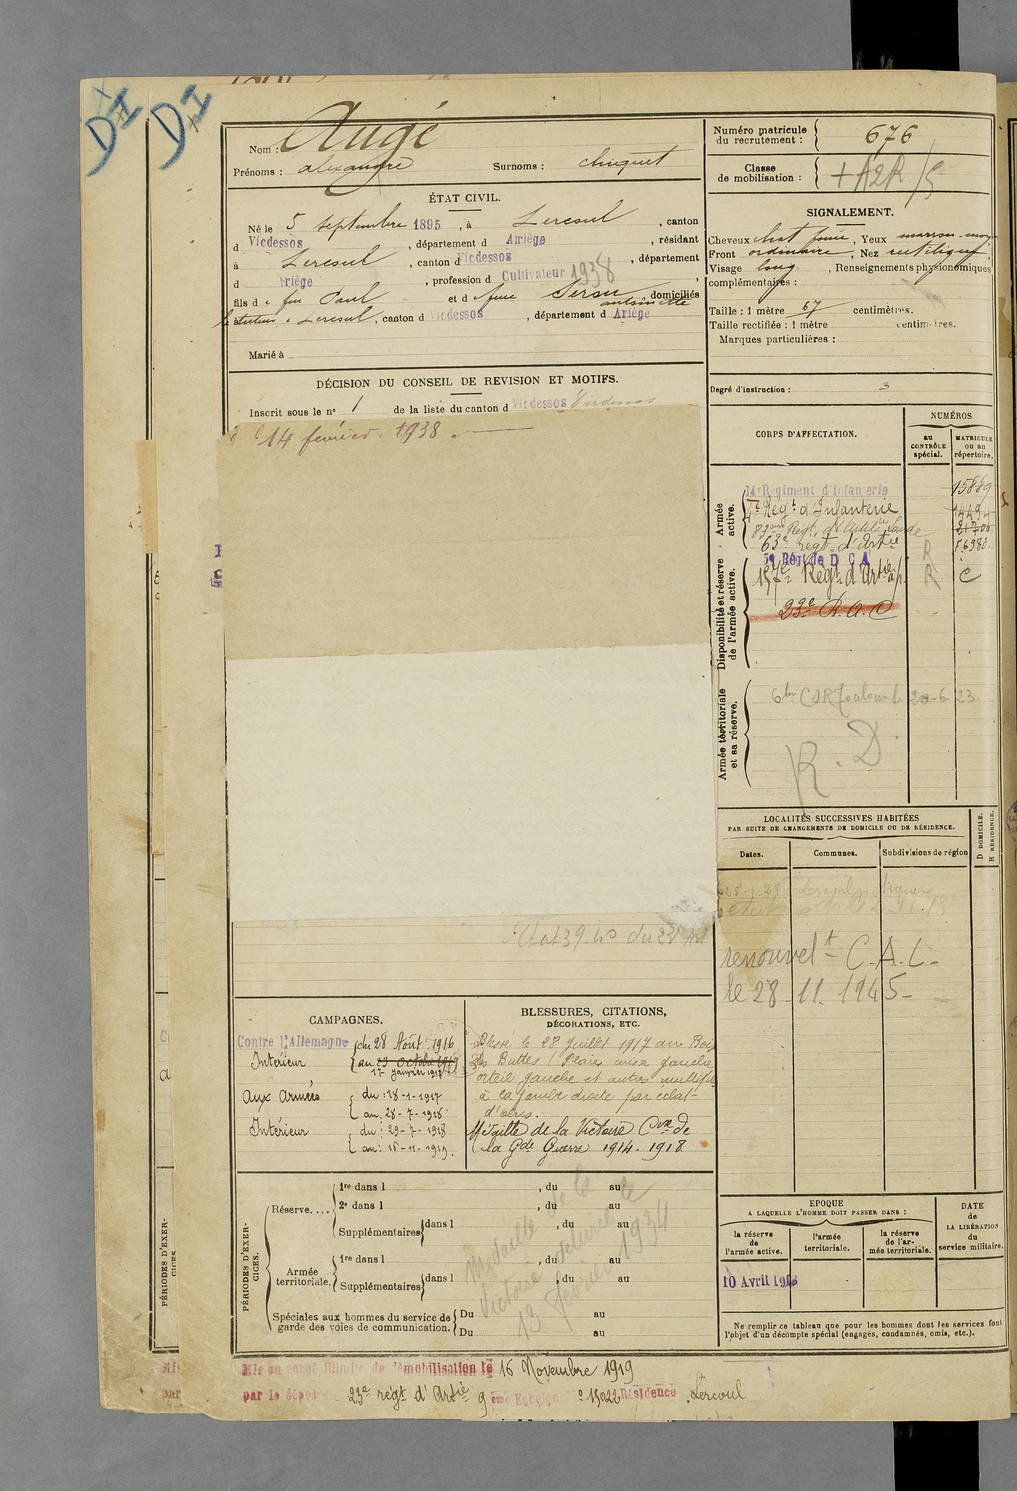 DI
DI
Nom : Augé
Prénoms : alexandre Surnoms : chiquet
Numéro matricule du recrutement : 676
Classe de mobilisation : + A2R/S
ÉTAT CIVIL.
Né le 5 septembre 1895, à Lercoul, canton
d Vicdessos, département d Ariège, résidant
à Lercoul, canton d Vicdessos, département
d Ariège, profession d Cultivateur 1938
fils d e feu Paul et d e feue domiciliés
antoinette
Lercoul, canton d Vicdessos, département d Ariège
Marié à
SIGNALEMENT.
Cheveux chat. foncé, Yeux marron
Front ordinaire, Nez rectiligne
Visage long, Renseignements physionomiques
complémentaires :
Taille : 1 mètre 67 centimètres.
Taille rectifiée : 1 mètre centimètres.
Marques particulières :
Degré d'instruction : 3
DÉCISION DU CONSEIL DE REVISION ET MOTIFS.
Inscrit sous le n° 1 de la liste du canton d Vicdessos Vicdessos
14 février 1938.
CORPS D'AFFECTATION.
NUMÉROS
au CONTRÔLE spécial.
MATRICULE ou au répertoire.
Armée active.
14e Régiment d'Infanterie 15889
7e Régt d'Infanterie
83eme Régt d'Artie Lourde
63e régt d'Artie
Disponibilité et réserve de l'armée active.
5e Régt de D C A
157e Régt d'Artie à p. R C
23e R.A.C
Armée territoriale et sa réserve.
20-6 23
R.D.
LOCALITÉS SUCCESSIVES HABITÉES
PAR SUITE DE CHANGEMENTS DE DOMICILE OU DE RÉSIDENCE.
Dates. Communes. Subdivisions de région
D DOMICILE.
R RÉSIDENCE.
renouvelt C.A.L.
le 28-11-1945-
CAMPAGNES.
Contre l'Allemagne du 28 Août 1916
Intérieur au 23 Octobre 1917
17 janvier 1917
Aux Armées du : 18-1-1917
au : 28-7-1918
Intérieur du : 29-7-1918
au : 16-11-1919.
BLESSURES, CITATIONS,
DÉCORATIONS, ETC.
Blessé le 28 Juillet 1917 au Bois
des Buttes ! Plaies main gauche
orteil gauche et autres multiples
à la jambe droite par éclat
d'obus.
Médaille de la Victoire Com de
la Gde Guerre 1914-1918
PÉRIODES D'EXERCICES.
Réserve....
1re dans l , du au
2e dans l , du au
Supplémentaires dans l , du au
Armée territoriale.
1re dans l , du au
Supplémentaires dans l , du au
Spéciales aux hommes du service de garde des voies de communication.
Du au
Du au
Médaille de la
Victoire
13 février 1934
EPOQUE
A LAQUELLE L'HOMME DOIT PASSER DANS :
la réserve de l'armée active.
l'armée territoriale.
la réserve de l'armée territoriale.
DATE de LA LIBÉRATION du service militaire.
10 Avril
Ne remplir ce tableau que pour les hommes dont les services font
l'objet d'un décompte spécial (engagés, condamnés, omis, etc.).
PÉRIODES D'EXERCICES
Mis en congé illimité de démobilisation le 16 Novembre 1919
par le dépôt 23e régt d'Artie 9 eme Echelon Résidence Lercoul